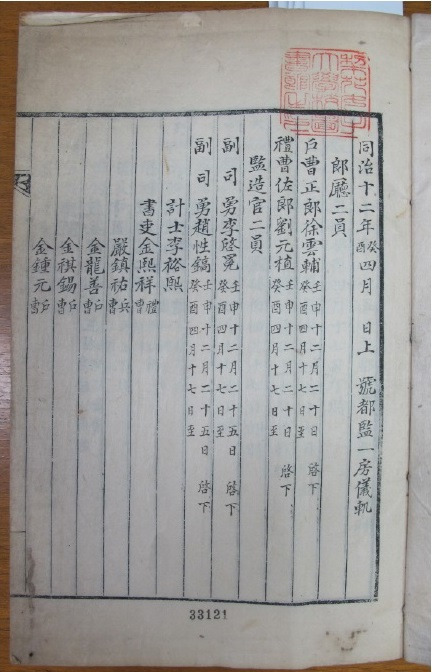 同治十二年癸酉四月 日上 號都監一房儀軌
郎廳二員
戶曹正郎徐雲輔 壬申十二月二十日 啓下 癸酉四月十七日至
禮曹佐郎劉元植 壬申十二月二十日 啓下 癸酉四月十七日至
監造官二員
副司勇李啓冕 壬申十二月二十五日 啓下 癸酉四月十七日至
副司勇趙性鎬 癸酉四月十七日至 壬申十二月二十五日 啓下
計士李裕熙
書吏金熙祥 禮曹
嚴鎮祐 兵曹
金龍善 戶曹
金祺錫 戶曹
金鍾元 戶曹
33121